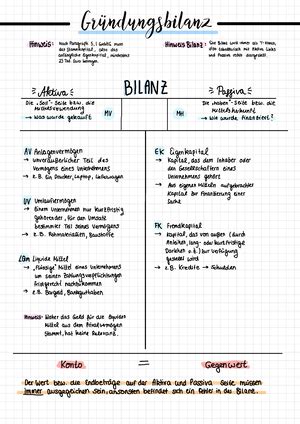 Gründungsbilanz
Hinweis:
Nach Paragrafh 5,1 GmbHG muss
das Stammkapital, also das
anfängliche Eigenkapital, mindestens
25 Tsd. Euro betragen.
Hinweis Bilanz:
Eine Bilanz wird immer als T-Konto,
mit Aktiva und Passiva dargestellt
Aktiva
BILANZ
Passiva
Die „Soll"-Seite bzw. die
Mittelverwendung
→ Was wurde gekauft
MV
MH
Die „Haben"-Seite bzw. die
Mittelherkunft
→ Wie wurde finanziert?
AV Anlagevermögen
→ Unveräußerlicher Teil des
Vermögens eines Unternehmens
→ z.B. Ein Drucker, Laptop, Lieferwagen
UV Umlaufvermögen
→ Einem Unternehmen nur kurzfristig
gehörender, für den Umsatz
bestimmter Teil seines Vermögens
→ z.B. Rohmaterialien, Baustoffe
Liquide Mittel
→ „Flüssige" Mittel eines Unternehmens
um seinen Zahlungsverpflichtungen
fristgerecht nachzukommen
→ z.B. Bargeld, Bankguthaben
Hinweis: Woher das Geld für die liquiden
Mittel aus dem Privatvermögen
stammt, hat keine Relevanz.
EK Eigenkapital
→ Kapital, das dem Inhaber oder
den Gesellschaftern eines
Unternehmens gehört
→ Aus eigenen Mitteln aufgebrachtes
Kapital zur Finanzierung einer
Sache
FK Fremdkapital
→ Kapital, das von außen (durch
Anleihen, lang- oder kurzfristige
Darlehen o.ä.) zur Verfügung
gestellt wird
→ z.B. Kredite → Schulden
Konto = Gegenwert
Der Wert bzw. die Endbeträge auf der Aktiva und Passiva Seite müssen
immer ausgeglichen sein, ansonsten befindet sich ein Fehler in der Bilanz.